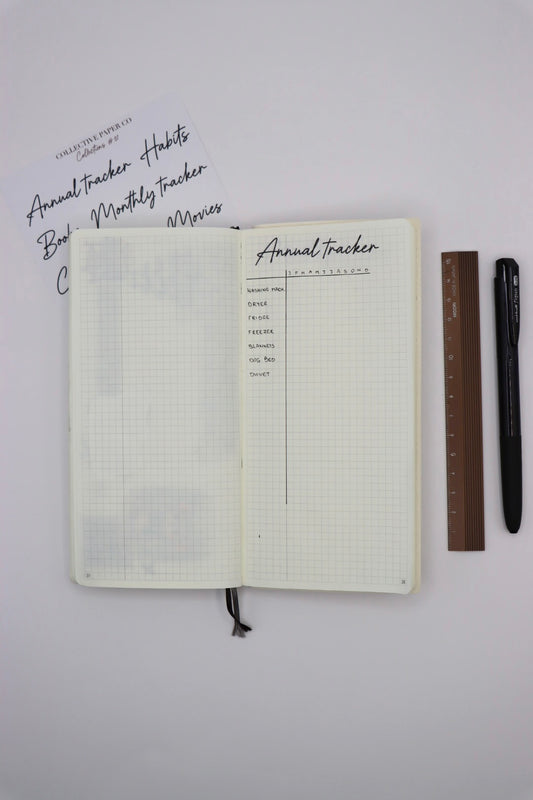 COLLECTIVE PAPER CO
Collections #01
Annual tracker Habits
Monthly tracker
Movies
Annual tracker
J F M A M J J A S O N D
WASHING MACH.
DRYER
FRIDGE
FREEZER
BLANKETS
DOG BED
DUVET